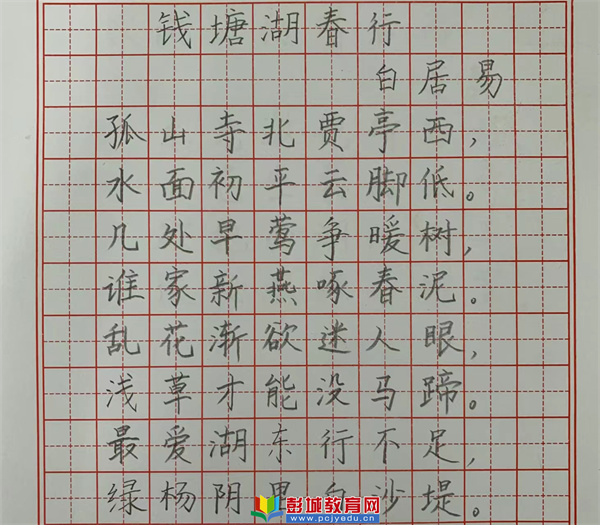 钱塘湖春行
白居易
孤山寺北贾亭西，
水面初平云脚低。
几处早莺争暖树，
谁家新燕啄春泥。
乱花渐欲迷人眼，
浅草才能没马蹄。
最爱湖东行不足，
绿杨阴里白沙堤。
彭城教育网
www.pcjyedu.cn